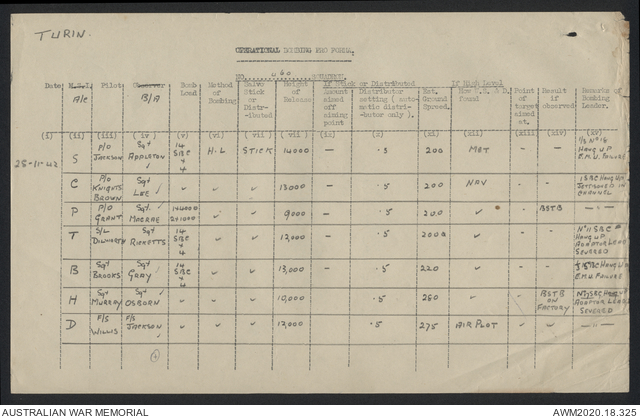 TURIN.
OPERATIONAL BOMBING PRO FORMA.
NO. 460 SQUADRON.
Date M.S.I. A/c Pilot Observer B/A Bomb Load Method of Bombing Salvo Stick or Distr-ibuted Height of Release If Stick or Distributed If High Level Point of target aimed at. Result if observed Remarks of Bombing Leader.
Amount aimed off aiming point Distributor setting ( auto-matic distri-buter only ). Est. Ground Speed. How
(i) (ii) (iii) (iv) (v) (vi) (vii) (viii) (ix) (x) (xi) (xii) (xiii) (xiv) (xv)
28-11-42 S P/O JACKSON Sgt APPLETON 14 SBC + 4 H.L STICK 14000 — .5 200 MET — — HANG UP E.M.U. FAILURE
C P/O KNIGHTS BROWN Sgt LEE ✓ ✓ ✓ 13000 — .5 200 NAV 1 SBC HANG UP JETTISONED IN CHANNEL
P P/O GRANT Sgt. McCRAE ✓ ✓ 9000 — .5 200 ✓ BSTB —"—
T S/L DILWORTH Sgt RICKETTS 14 SBC + 4 ✓ ✓ 12,000 — .5 200 ✓ N° 11 SBC HANG UP ADAPTOR LEAD SEVERED
B Sgt BROOKS Sgt GRAY 14 SBC + 4 ✓ ✓ 13,000 — .5 220 ✓ SBC HANG UP E.M.U FAILURE
H Sgt MURRAY Sgt OSBORN ✓ ✓ ✓ 10,000 .5 250 ✓ BSTB ON FACTORY SBC HANG UP ADAPTOR LEAD SEVERED
D F/S WILLIS F/S JACKSON ✓ ✓ ✓ 12,000 .5 275 AIR PLOT ✓ —"—
AUSTRALIAN WAR MEMORIAL
AWM2020.18.325